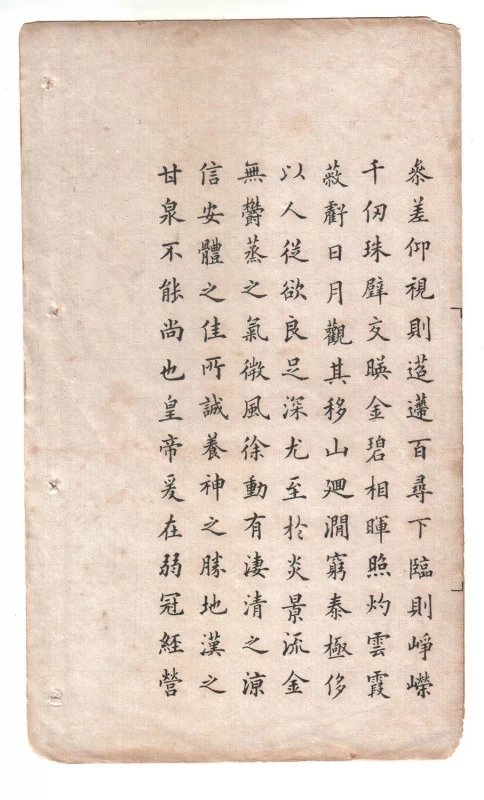 叅差仰視則迢遰百尋下臨則崢嶸
千仞珠壁交暎金碧相暉照灼雲霞
蔽虧日月觀其移山迴澗窮泰極侈
以人從欲良足深尤至於炎景流金
無鬱蒸之氣微風徐動有淒清之涼
信安體之佳所誠養神之勝地漢之
甘泉不能尚也皇帝爰在弱冠經營